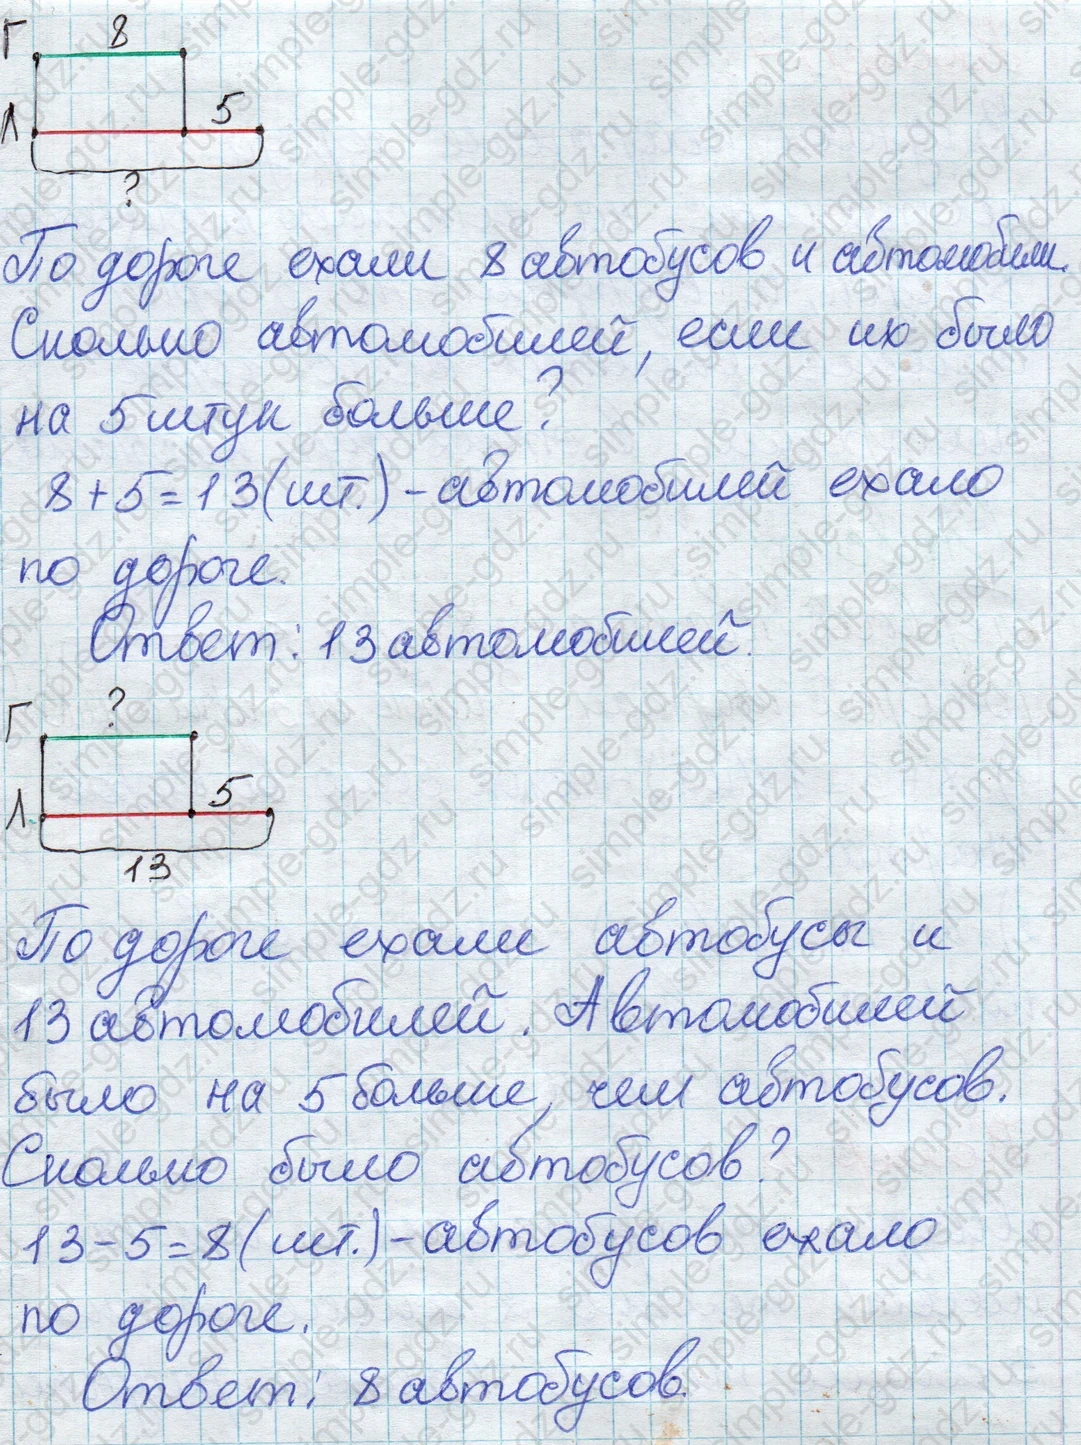 Г 8
Л 5
?
По дороге ехали 8 автобусов и автомобили.
Сколько автомобилей, если их было
на 5 штук больше?
8+5=13(шт.) - автомобилей ехало
по дороге.
Ответ: 13 автомобилей.
Г ?
Л 5
13
По дороге ехали автобусы и
13 автомобилей. Автомобилей
было на 5 больше, чем автобусов.
Сколько было автобусов?
13-5=8(шт.) - автобусов ехало
по дороге.
Ответ: 8 автобусов.
simple-gdz.ru